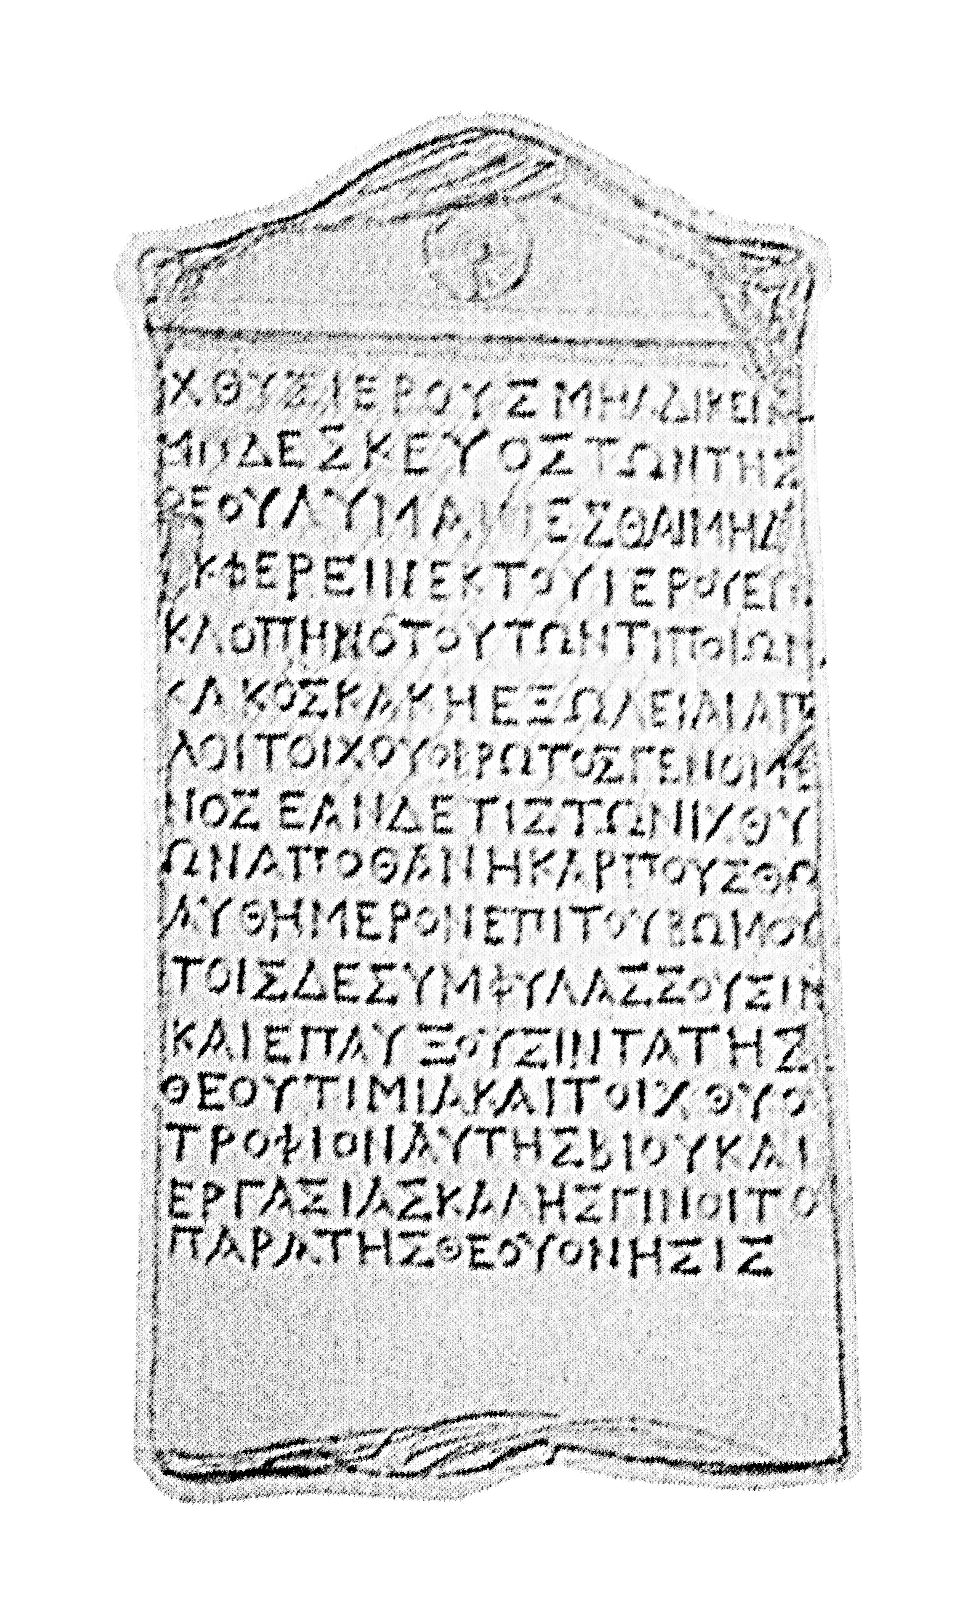 ΧΘΥΣΙΕΡΟΥΣΜΗΑΔΙΚΕΙΝ
ΜΗΔΕΣΚΕΥΟΣΤΩΝΤΗΣ
ΘΕΟΥΛΥΜΑΙΝΕΣΘΑΙΜΗΔ
ΚΦΕΡΕΙΝΕΚΤΟΥΙΕΡΟΥΕΠΙ
ΚΛΟΠΗΝΟΤΟΥΤΩΝΤΙΠΟΙΩΝ
ΚΑΚΟΣΚΑΚΗΕΞΩΛΕΙΑΙΑΠ
ΛΟΙΤΟΙΧΟΥΟΒΡΩΤΟΣΓΕΝΟΜΕ
ΝΟΣΕΑΝΔΕΤΙΣΤΩΝΙΧΘΥ
ΩΝΑΠΟΘΑΝΗΚΑΡΠΟΥΣΘΩ
ΑΥΘΗΜΕΡΟΝΕΠΙΤΟΥΒΩΜΟΥ
ΤΟΙΣΔΕΣΥΜΦΥΛΑΣΣΟΥΣΙΝ
ΚΑΙΕΠΑΥΞΟΥΣΙΝΤΑΤΗΣ
ΘΕΟΥΤΙΜΙΑΚΑΙΤΟΙΧΘΥΟ
ΤΡΟΦΙΟΝΑΥΤΗΣΒΙΟΥΚΑΙ
ΕΡΓΑΣΙΑΣΚΑΛΗΣΓΙΝΟΙΤΟ
ΠΑΡΑΤΗΣΘΕΟΥΟΝΗΣΙΣ